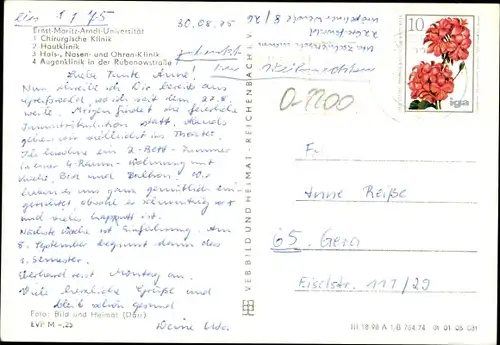 30.08.75
Ernst-Moritz-Arndt-Universität
1 Chirurgische Klinik
2 Hautklinik
3 Hals-, Nasen- und Ohren-Klinik
4 Augenklinik in der Rubenowstraße
Liebe Tante Anne!
Nun schreibe ich Dir bereits aus
Greifswald, wo ich seit dem 27.8.
weile. Morgen findet die feierliche
Immatrikulation statt, abends
gehen wir vielleicht ins Theater.
Ich bewohne ein 2-Bett-Zimmer
in einer 4-Raum-Wohnung mit
Küche, Bad und Balkon. Wir
haben es uns ganz gemütlich ein-
gerichtet obwohl es schmutzig war
und vieles kaputt ist.
Nächste Woche ist Einführung. Am
8. September beginnt dann das
1. Semester.
Eberhard reist Montag an.
Viele herzliche Grüße und
bleib schön gesund
Deine Uta.
Foto: Bild und Heimat (Darr)
EVP M -,25
VEB BILD UND HEIMAT · REICHENBACH I. V.
10
iga
0-2200
Anne Reiße
65 Gera
Eiselstr. 111/29
III 18 98 A 1/B 764/74 01 01 05 031